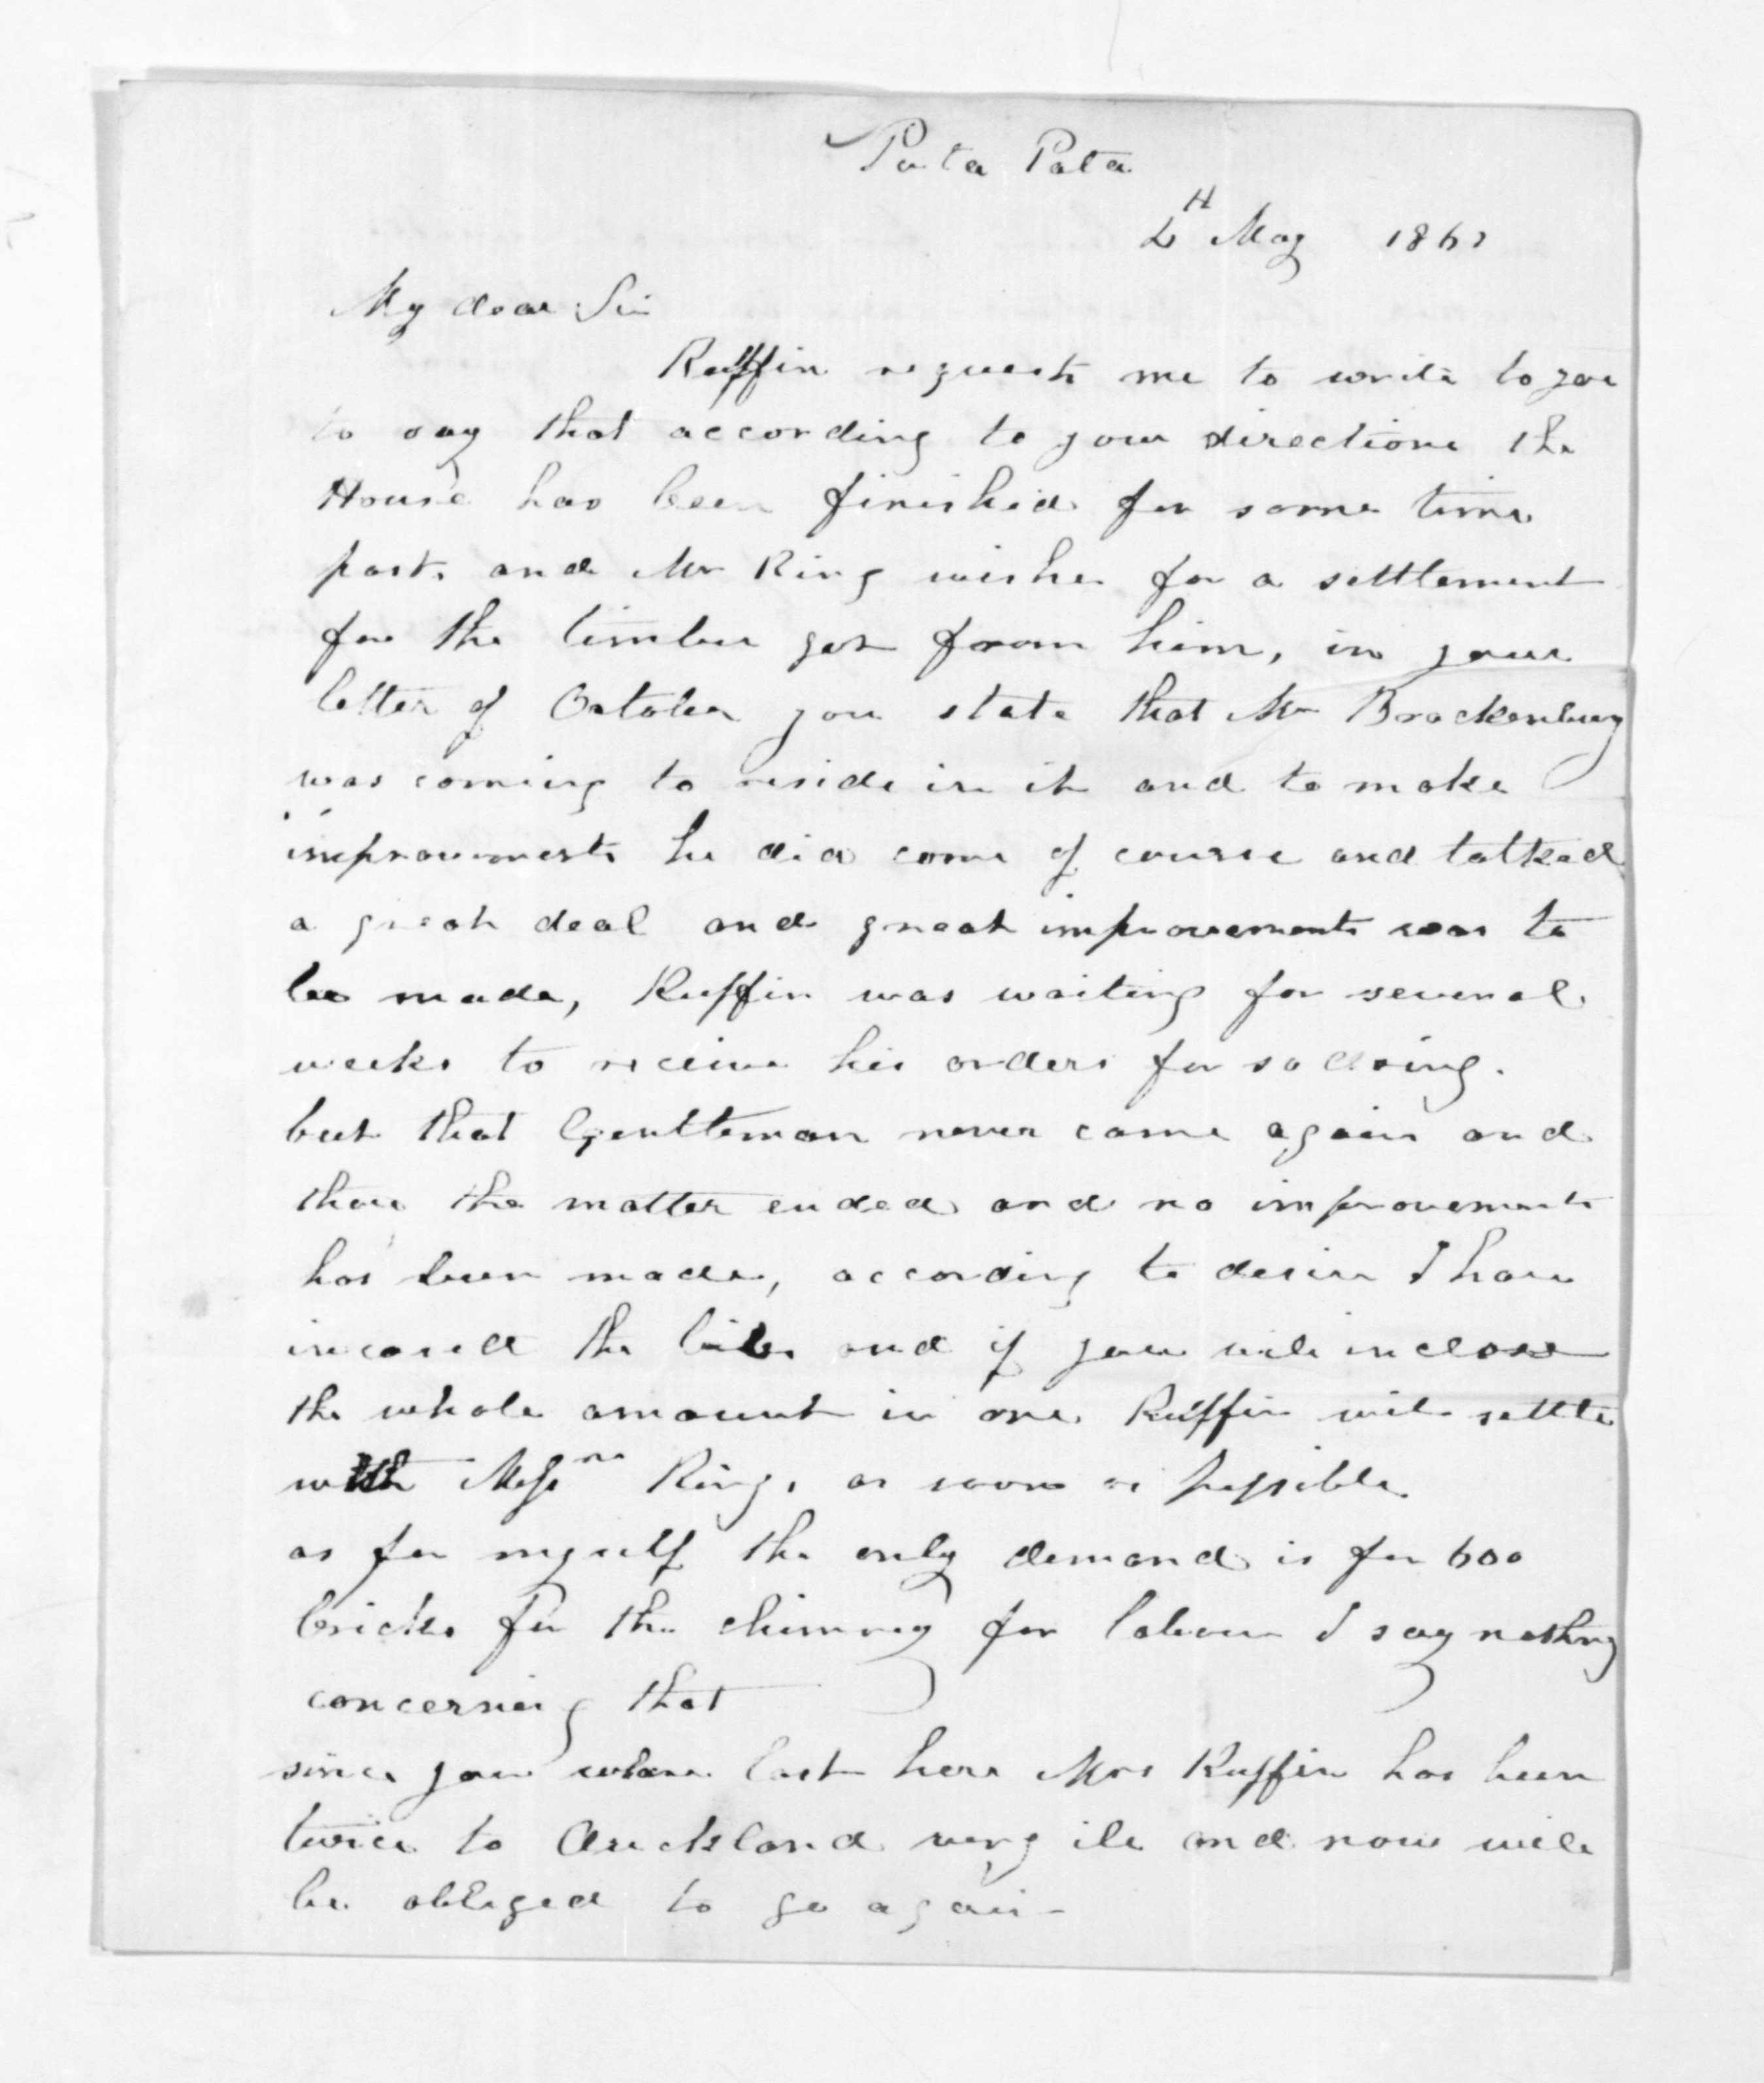 Pata Pata
4th May 1861
My dear Sir
Ruffin requests me to write to you
to say that according to your directions the
House has been finished for some time
past, and Mr Ring wishes for a settlement
for the timber got from him, in your
letter of October you state that Mr Brackenbury
was coming to reside in it and to make
improvements he did come of course and talked
a great deal and great improvements was to
be made, Ruffin was waiting for several
weeks to receive his orders for so doing.
but that Gentleman never came again and
thus the matter ended and no improvements
has been made, according to desire I have
incosed the bills and if you will inclose
the whole amount in one Ruffin will settle
with Messrs Ring, as soon as possible
as for myself the only demand is for 600
bricks for the chimney for labour I say nothing
concerning that
since you where last here Mrs Ruffin has been
twice to Auckland very ill and now will
be obliged to go again-